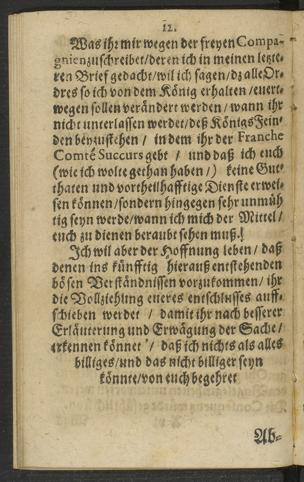 12.
Was ihr mir wegen der freyen Compa-
gnien zuschreibet/deren ich in meinen letzte-
ren Brief gedacht/wil ich sagen/dz alle Or-
dres so ich von dem König erhalten/euert-
wegen sollen verändert werden/ wann ihr
nicht unterlassen werdet/deß Königs Fein-
den beyzustehen / in dem ihr der Franche
Comté Succurs gebt / und daß ich euch
(wie ich wolte gethan haben/) keine Gut-
thaten und vortheilhafftige Dienste erwei-
sen können/sondern hingegen sehr unmüh
tig seyn werde/wann ich mich der Mittel/
euch zu dienen beraubt sehen muß.
Ich wil aber der Hoffnung leben/ daß
denen ins künfftig hierauß entstehenden
bösen Verständnissen vorzukommen/ ihr
die Vollziehung eueres entschlusses auff-
schieben werdet / damit ihr nach besserer
Erläuterung und Erwägung der Sache/
erkennen könnet / daß ich nichts als alles
billiges/und das nicht billiger seyn
könnte/von euch begehret
Ab-